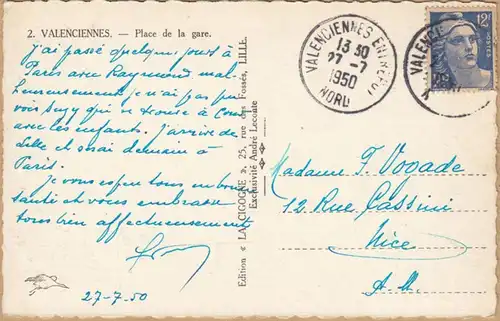 2. VALENCIENNES. — Place de la gare.
J'ai passé quelques jours à
Paris avec Raymond mal-
heureusement je n'ai pas pu
voir Suzy qui se trouve à
avec les enfants. J'arrive de
Lille et serai demain à
Paris.
Je vous espère tous en bonne
santé et vous embrasse
tous bien affectueusement
27-7-50
Edition « LA CIGOGNE », 25, rue des Fossés, LILLE.
Exclusivité André Leconte
VALENCIENNES
13 30
27 -7
1950
NORD
VALENC
12F
POSTES
Madame F. Vogade
12 Rue Cassini
Nice
A. M.